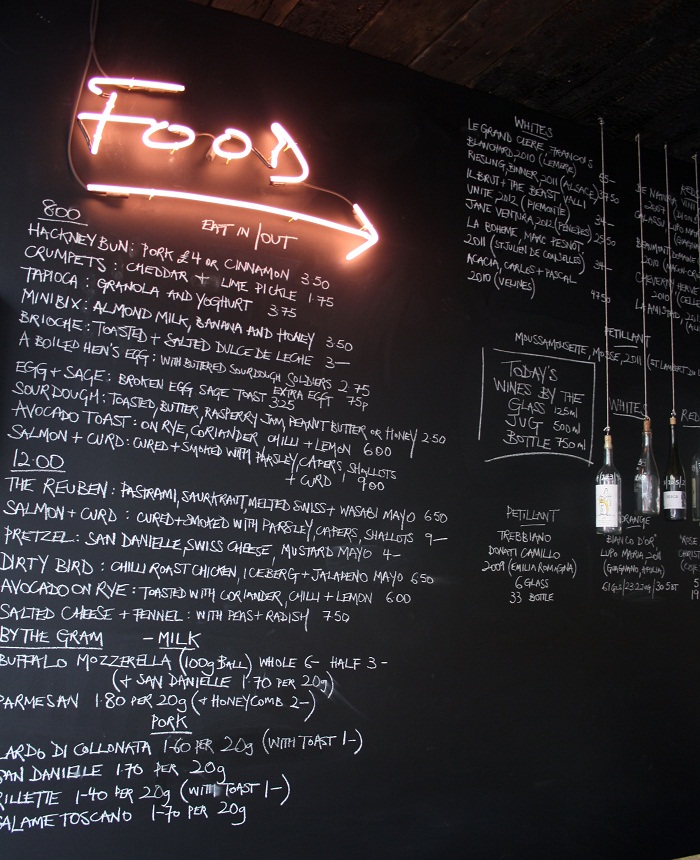 Food
EAT IN/OUT
8:00
HACKNEY BUN: PORK £4 OR CINNAMON 3.50
CRUMPETS: CHEDDAR + LIME PICKLE 1.75
TAPIOCA: GRANOLA AND YOGHURT 3.75
MINIBIX: ALMOND MILK, BANANA AND HONEY 3.50
BRIOCHE: TOASTED + SALTED DULCE DE LECHE 3—
A BOILED HEN'S EGG: WITH BUTTERED SOURDOUGH SOLDIERS 2.75
EXTRA EGG 75p
EGG + SAGE: BROKEN EGG SAGE TOAST 3.25
SOURDOUGH: TOASTED, BUTTER, RASPERRY JAM, PEANUT BUTTER OR HONEY 2.50
AVOCADO TOAST: ON RYE, CORIANDER, CHILLI + LEMON 6.00
SALMON + CURD: CURED + SMOKED WITH PARSLEY, CAPERS, SHALLOTS
+ CURD 9.00
12:00
THE REUBEN: PASTRAMI, SAURKRAUT, MELTED SWISS + WASABI MAYO 6.50
SALMON + CURD: CURED + SMOKED WITH PARSLEY, CAPERS, SHALLOTS 9—
PRETZEL: SAN DANIELLE, SWISS CHEESE, MUSTARD MAYO 4—
DIRTY BIRD: CHILLI ROAST CHICKEN, ICEBERG + JALAPENO MAYO 6.50
AVOCADO ON RYE: TOASTED WITH CORIANDER, CHILLI + LEMON 6.00
SALTED CHEESE + FENNEL: WITH PEAS + RADISH 7.50
BY THE GRAM — MILK
BUFFALO MOZZERELLA (100g BALL) WHOLE 6— HALF 3—
(+ SAN DANIELLE 1.70 PER 20g)
PARMESAN 1.80 PER 20g (+ HONEYCOMB 2—)
PORK
LARDO DI COLLONATA 1.60 PER 20g (WITH TOAST 1—)
SAN DANIELLE 1.70 PER 20g
RILLETTE 1.40 PER 20g (WITH TOAST 1—)
SALAME TOSCANO 1.70 PER 20g
WHITES
LE GRAND CLERE, FRANCOIS
BLANCHARD 2010 (LEMERE)
RIESLING, BINNER, 2011 (ALSACE)
IL BRUT + THE BEAST VALLI
UNITE 2012 (PIEMONTE)
JANE VENTURA, 2012 (PENEDES)
LA BOHEME, MARC PESNOT
2011 (ST JULIEN DE CONSELLES)
ACACIA, CARLES + PASCAL
2010 (VELINES) 47.50
PETILLANT
MOUSSAMOUSETTE, MOSSE, 2011
TODAY'S
WINES BY THE
GLASS 125ml
JUG 500ml
BOTTLE 750ml
WHITE
RED
PETILLANT
TREBBIANO
DONATI CAMILLO
2009 (EMILIA ROMAGNA)
6 GLASS
33 BOTTLE
ORANGE
BIANCO D'OR'
LUPO MARIA, 2011